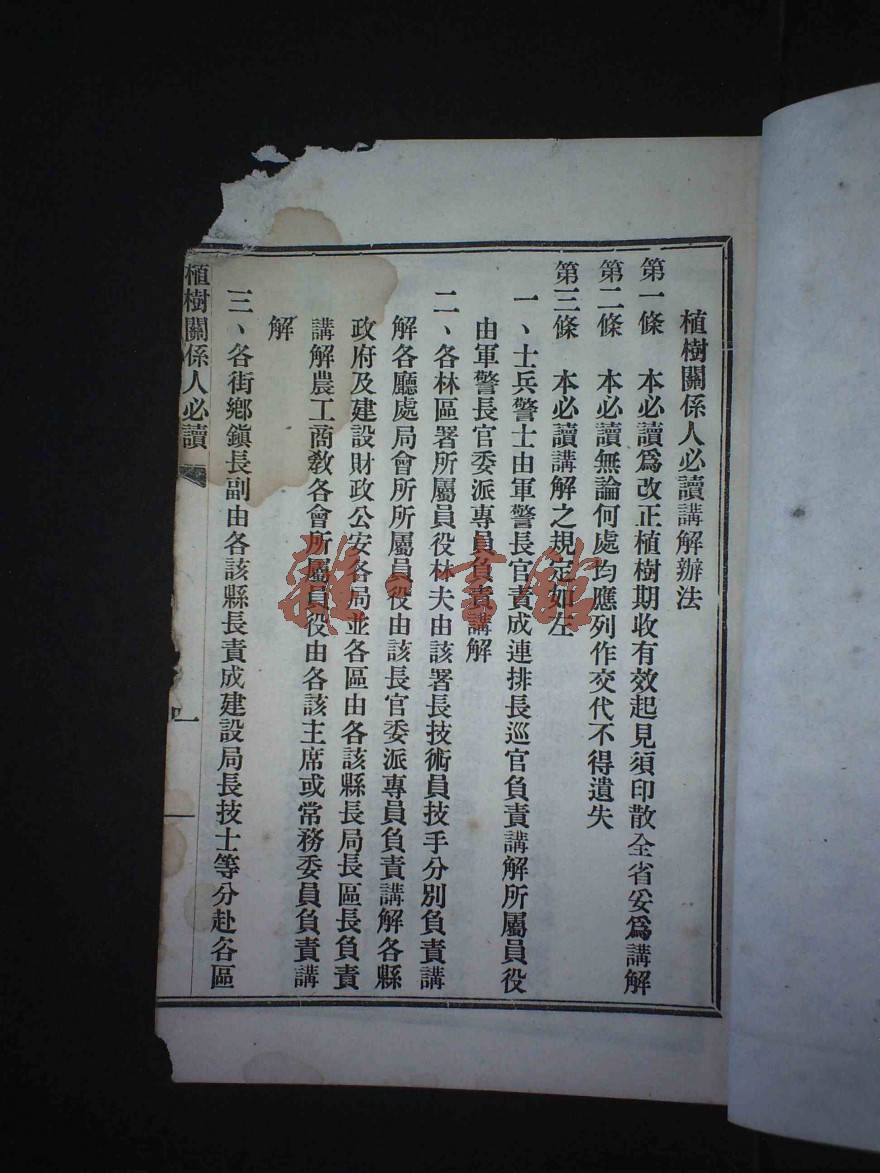 植樹關係人必讀講解辦法
第一條　本必讀爲改正植樹期收有效起見須印散全省妥爲講解
第二條　本必讀無論何處均應列作交代不得遺失
第三條　本必讀講解之規定如左
一、士兵警士由軍警長官責成連排長巡官負責講解所屬員役
由軍警長官委派專員負責講解
二、各林區署所屬員役林夫由該署長技術員技手分別負責講
解各廳處局會所所屬員役由該長官委派專員負責講解各縣
政府及建設財政公安各局並各區由各該縣長局長區長負責
講解農工商教各會所屬員役由各該主席或常務委員負責講
解
三、各街鄉鎮長副由各該縣長責成建設局長技士等分赴各區
植樹關係人必讀
一
雜·書館